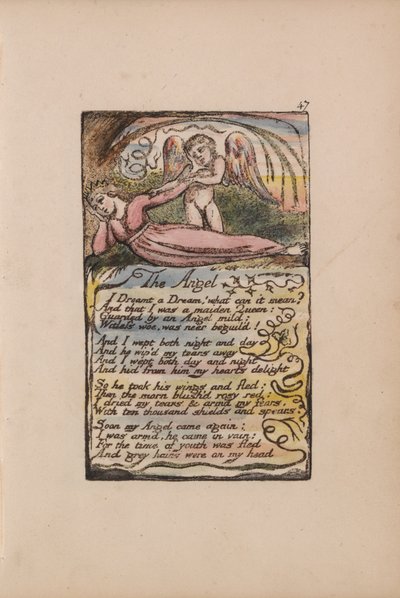 47
The Angel
I Dreamt a Dream! what can it mean?
And that I was a maiden Queen:
Guarded by an Angel mild;
Witless woe, was neer beguil'd!
And I wept both night and day
And he wip'd my tears away
And I wept both day and night
And hid from him my hearts delight
So he took his wings and fled:
Then the morn blush'd rosy red:
I dried my tears & armd my fears,
With ten thousand shields and spears.
Soon my Angel came again;
I was arm'd, he came in vain:
For the time of youth was fled
And grey hairs were on my head